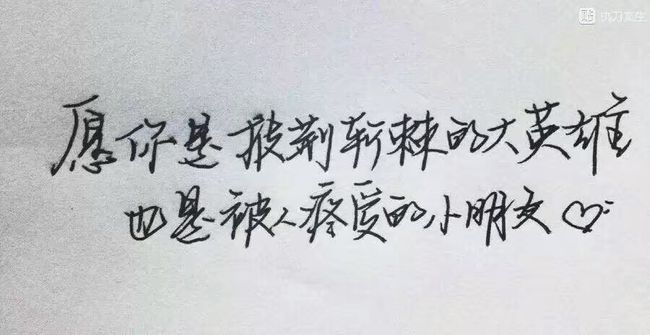 愿你是披荆斩棘的大英雄
也是被人疼爱的小朋友♡